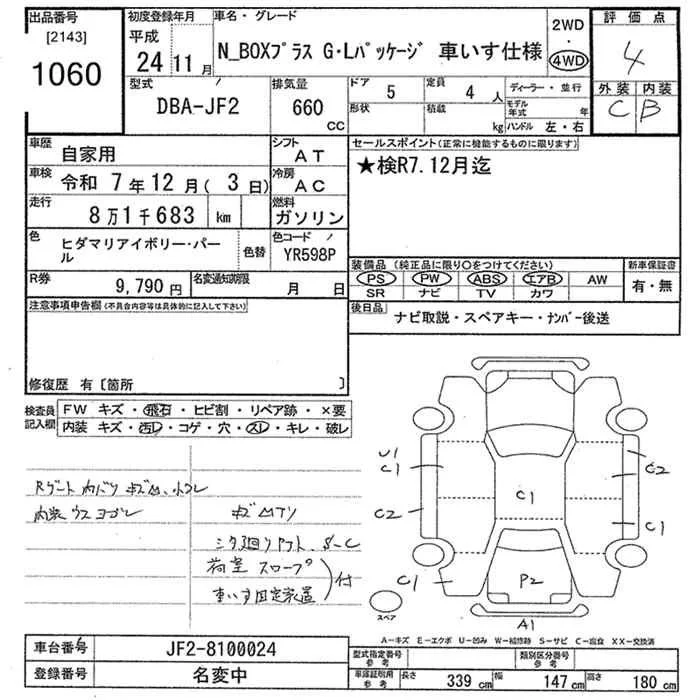 出品番号
[2143]
1060
初度登録年月
平成
24 11月
車名・グレード
N_BOXプラス G・Lパッケージ 車いす仕様
2WD
・
4WD
評価点
4
外装 内装
C B
型式
DBA-JF2
排気量
660
CC
ドア
5
定員
4人
形状
積載
kg
ディーラー・並行
モデル年式 年
ハンドル 左・右
車歴
自家用
シフト
AT
車検
令和 7年12月(3日)
冷房
AC
走行
8万1千683 km
燃料
ガソリン
色
ヒダマリアイボリー・パール
色替
色コード
YR598P
R券
9,790円
名変通知期限
月 日
セールスポイント(正常に機能するものに限ります)
★検R7.12月迄
装備品(純正品に限り○をつけてください)
PS PW ABS エアB AW
SR ナビ TV カワ
新車保証書
有・無
後日品
ナビ取説・スペアキー・ナンバー後送
注意事項申告欄(不具合内容等は具体的に記入して下さい)
修復歴 有〔箇所 〕
検査員記入欄
FW キズ・飛石・ヒビ割・リペア跡・×要
内装 キズ・汚レ・コゲ・穴・スレ・キレ・破レ
Rゲート内バリ キズM、小コレ
内装ウスヨゴレ
キズM
下廻り
荷室スロープ
車いす固定装置
付
U1
C1
C2
C1
C2
C1
C1
P2
A1
スペア
A-キズ E-エクボ U-凹み W-補修跡 S-サビ C-腐食 XX-交換済
車台番号
JF2-8100024
登録番号
名変中
型式指定番号
参考
類別区分番号
参考
車庫証明用
参考
長さ 339 cm
幅 147 cm
高さ 180 cm